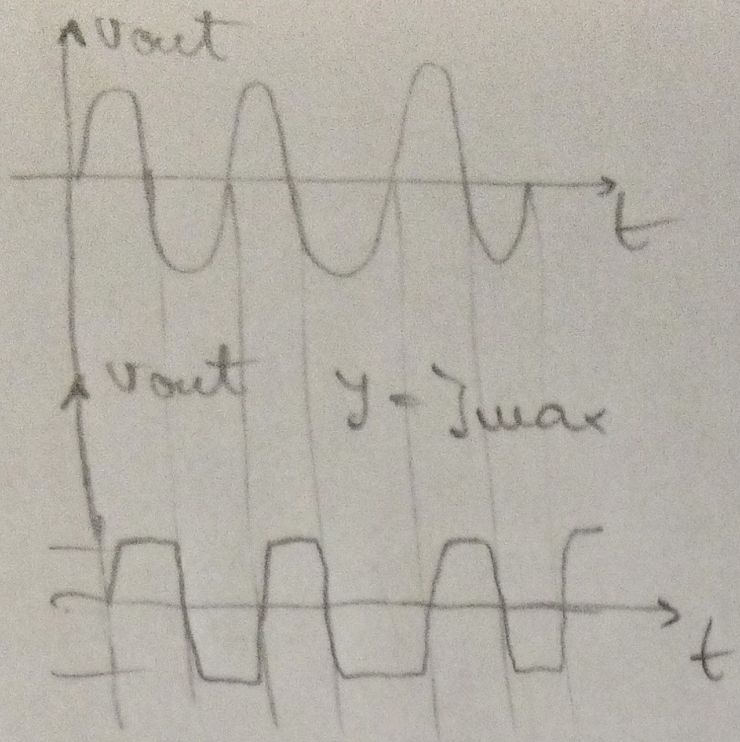 vout
t
vout
y = ymax
t